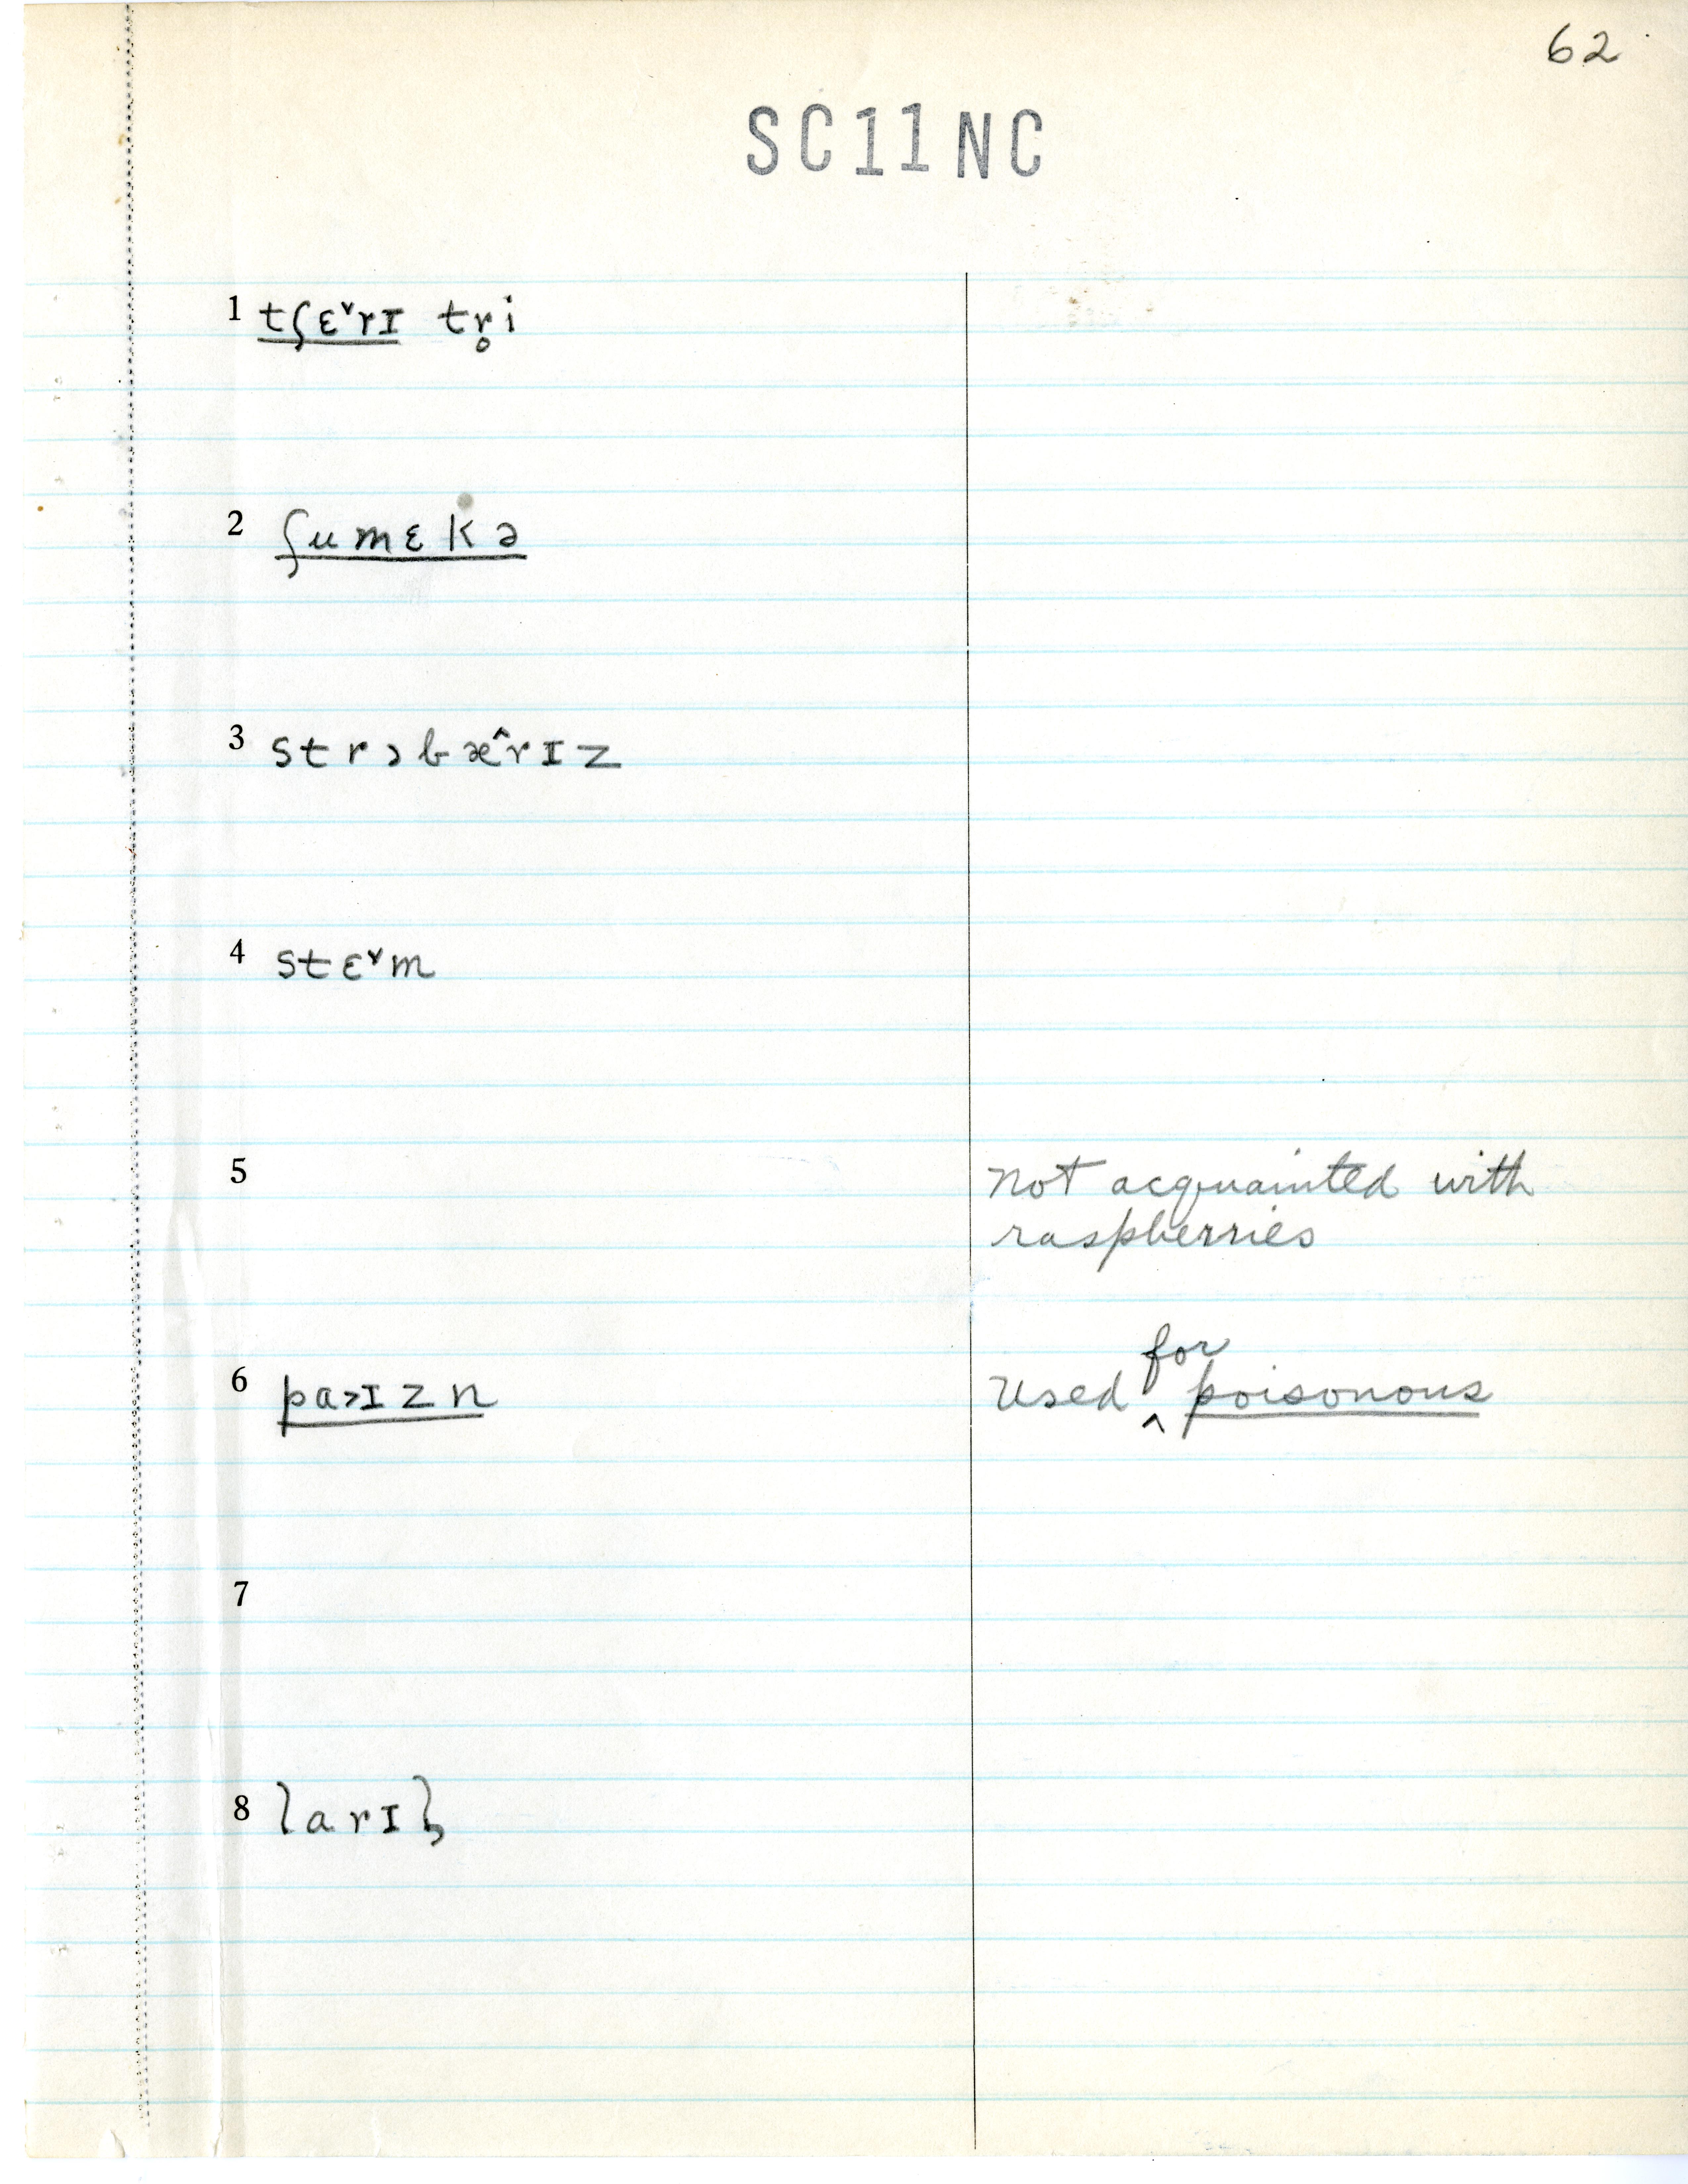 62
SC11NC
1 tʃɛ˅rɪ tr̥i
2 ʃumɛkə
3 strɔbæ˄rɪz
4 stɛ˅m
5 Not acquainted with
raspberries
6 pa˃ɪzn Used for poisonous
7
8 larɪɫ